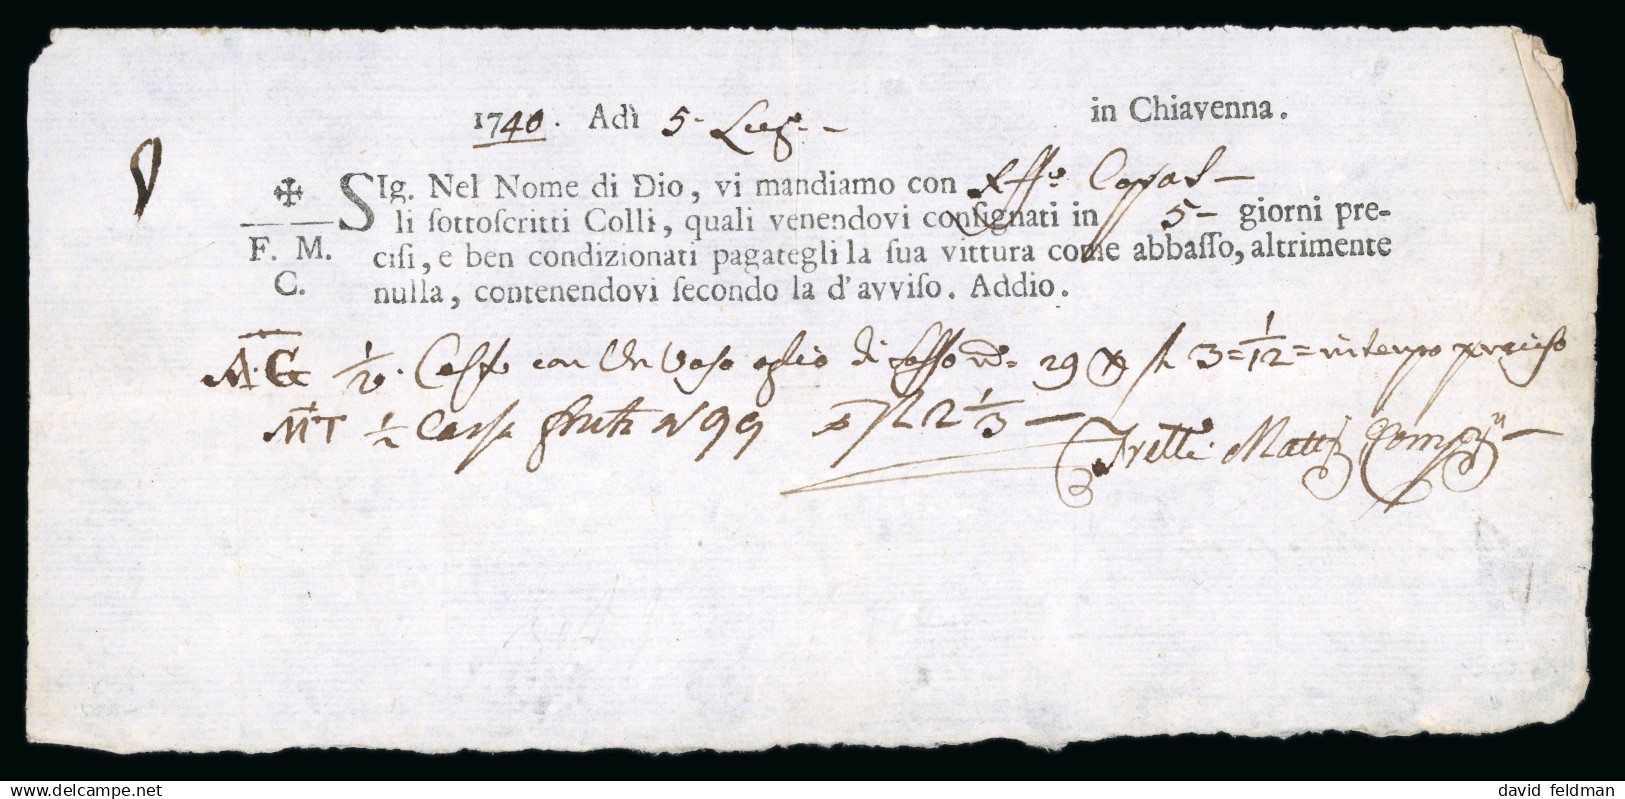 1740. Adì 5 - Lug.º - in Chiavenna.
✠ SIg. Nel Nome di Dio, vi mandiamo con
li ſottoſcritti Colli, quali venendovi conſignati in 5 - giorni pre-
F. M. ciſi, e ben condizionati pagategli la ſua vittura come abbaſſo, altrimente
C. nulla, contenendovi ſecondo la d'avviſo. Addio.
A. G. 1/2. con Un Vaso oglio di Sasso nº. 29 3 = 1/12 = in tempo preciso
MT 1/2 Cassa nº 99 2 1/3 -
Frelli Mattij Comp.
delcampe.net
david feldman